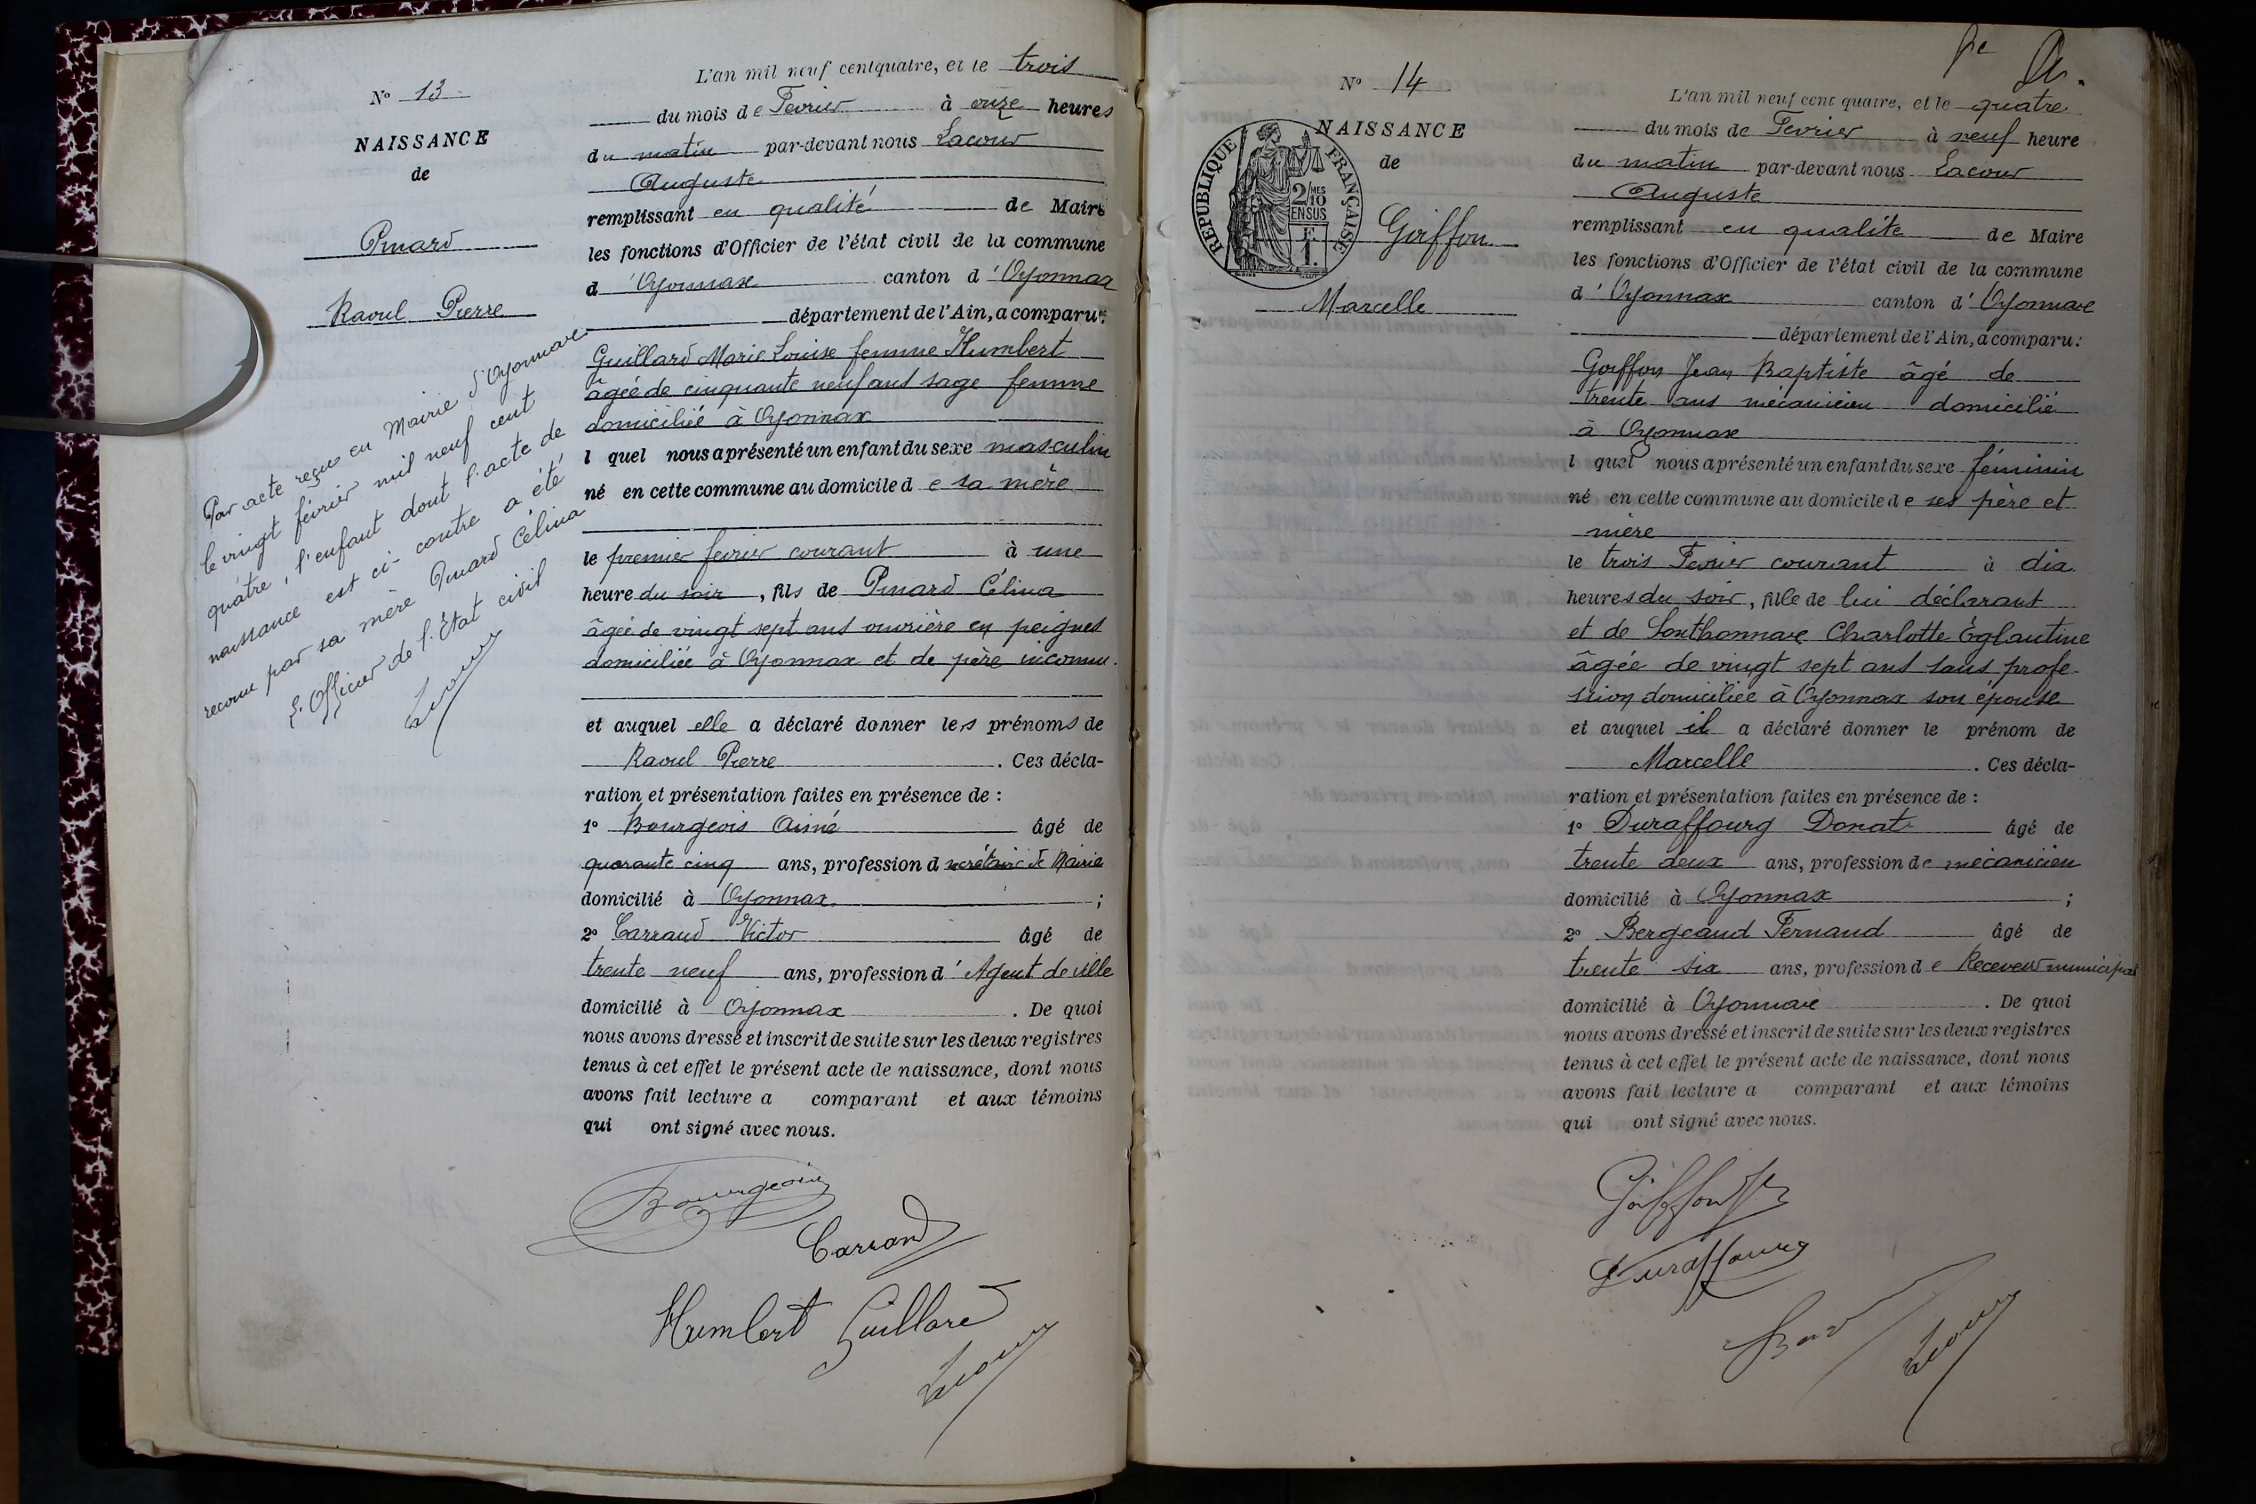 N° 13
NAISSANCE
de
Pinard
Raoul Pierre
Par acte reçu en Mairie d'Oyonnax
le vingt février mil neuf cent
quatre, l'enfant dont l'acte de
naissance est ci-contre a été
reconnu par sa mère Pinard Célina
L'Officier de l'État civil
Lacour
L'an mil neuf cent quatre, et le trois
du mois de Fevrier à onze heures
du matin par-devant nous Lacour
Auguste
remplissant en qualité de Maire
les fonctions d'Officier de l'état civil de la commune
d'Oyonnax canton d'Oyonnax
département de l'Ain, a comparu:
Guillard Marie Louise femme Humbert
âgée de cinquante neuf ans sage femme
domiciliée à Oyonnax
l quel nous a présenté un enfant du sexe masculin
né en cette commune au domicile de sa mère
le premier fevrier courant à une
heure du soir, fils de Pinard Célina
âgée de vingt sept ans ouvrière en peignes
domiciliée à Oyonnax et de père inconnu.
et auquel elle a déclaré donner les prénoms de
Raoul Pierre. Ces décla-
ration et présentation faites en présence de :
1° Bourgeois Aimé âgé de
quarante cinq ans, profession d secrétaire de Mairie
domicilié à Oyonnax ;
2° Carraud Victor âgé de
trente neuf ans, profession d'Agent de ville
domicilié à Oyonnax. De quoi
nous avons dressé et inscrit de suite sur les deux registres
tenus à cet effet le présent acte de naissance, dont nous
avons fait lecture a comparant et aux témoins
qui ont signé avec nous.
Bourgeois
Carraud
Humbert Guillard
Lacour
N° 14
NAISSANCE
de
RÉPUBLIQUE FRANÇAISE
2/10
MES
EN SUS
F
1.
Goiffon
Marcelle
L'an mil neuf cent quatre, et le quatre
du mois de Fevrier à neuf heure
du matin par-devant nous Lacour
Auguste
remplissant en qualité de Maire
les fonctions d'Officier de l'état civil de la commune
d'Oyonnax canton d'Oyonnax
département de l'Ain, a comparu:
Goiffon Jean Baptiste âgé de
trente ans mécanicien domicilié
à Oyonnax
l quel nous a présenté un enfant du sexe féminin
né en cette commune au domicile de ses père et
mère
le trois Fevrier courant à dix
heures du soir, fille de lui déclarant
et de Sonthonnax Charlotte Églantine
âgée de vingt sept ans sans profes-
sion domiciliée à Oyonnax son épouse
et auquel il a déclaré donner le prénom de
Marcelle. Ces décla-
ration et présentation faites en présence de :
1° Duraffourg Donat âgé de
trente deux ans, profession de mécanicien
domicilié à Oyonnax ;
2° Bergeaud Fernand âgé de
trente six ans, profession de Receveur municipal
domicilié à Oyonnax. De quoi
nous avons dressé et inscrit de suite sur les deux registres
tenus à cet effet le présent acte de naissance, dont nous
avons fait lecture a comparant et aux témoins
qui ont signé avec nous.
Goiffon
Duraffourg
Lacour